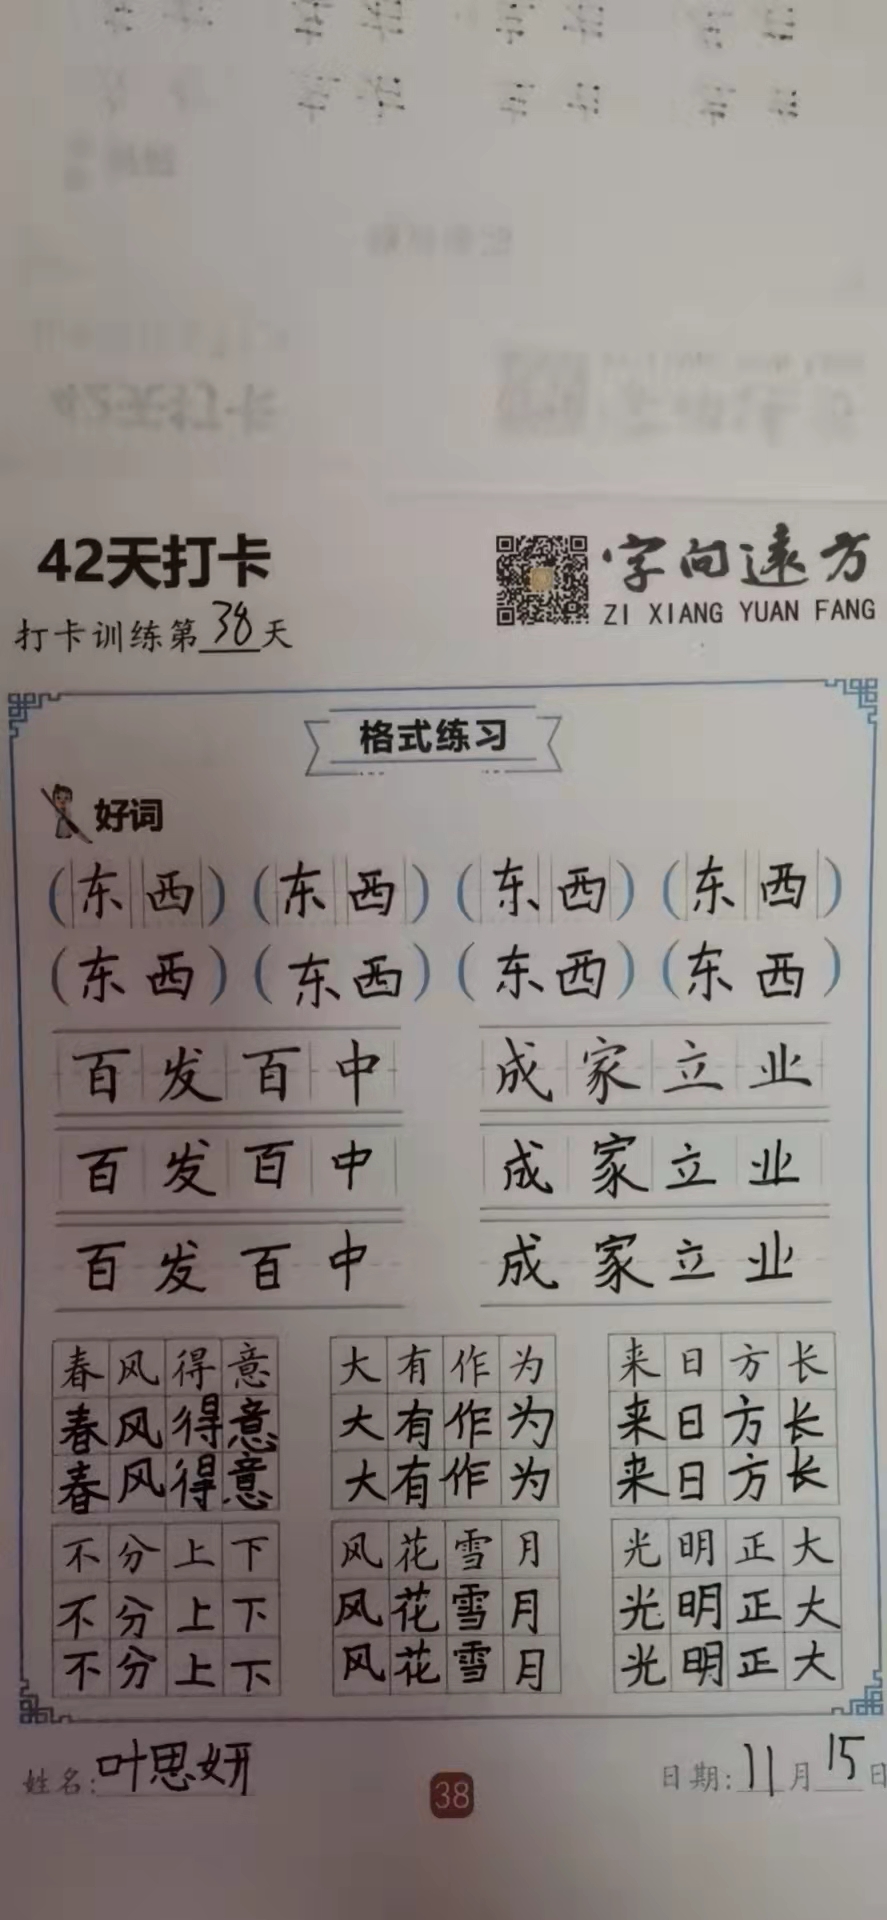 42天打卡
字向远方
ZI XIANG YUAN FANG
打卡训练第38天
格式练习
好词
(东西)(东西)(东西)(东西)
(东西)(东西)(东西)(东西)
百发百中 成家立业
百发百中 成家立业
百发百中 成家立业
春风得意 大有作为 来日方长
春风得意 大有作为 来日方长
春风得意 大有作为 来日方长
不分上下 风花雪月 光明正大
不分上下 风花雪月 光明正大
不分上下 风花雪月 光明正大
姓名:叶思妍 38 日期:11月15日